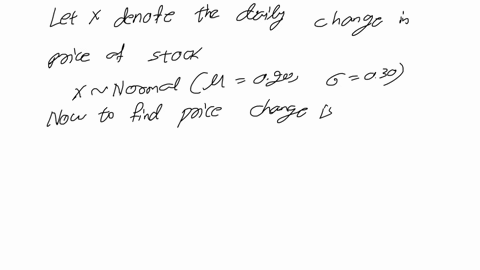 Let x denote the daily change is
price of stock
x ~ Normal (μ = 0.200, σ = 0.30)
Now to find price change is